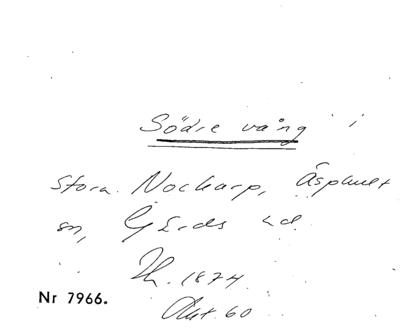 Södre vång i
Stora Nockarp, Äsphult
sn, Gärds hd.
Th. 1874
Nr 7966.
Akt. 60